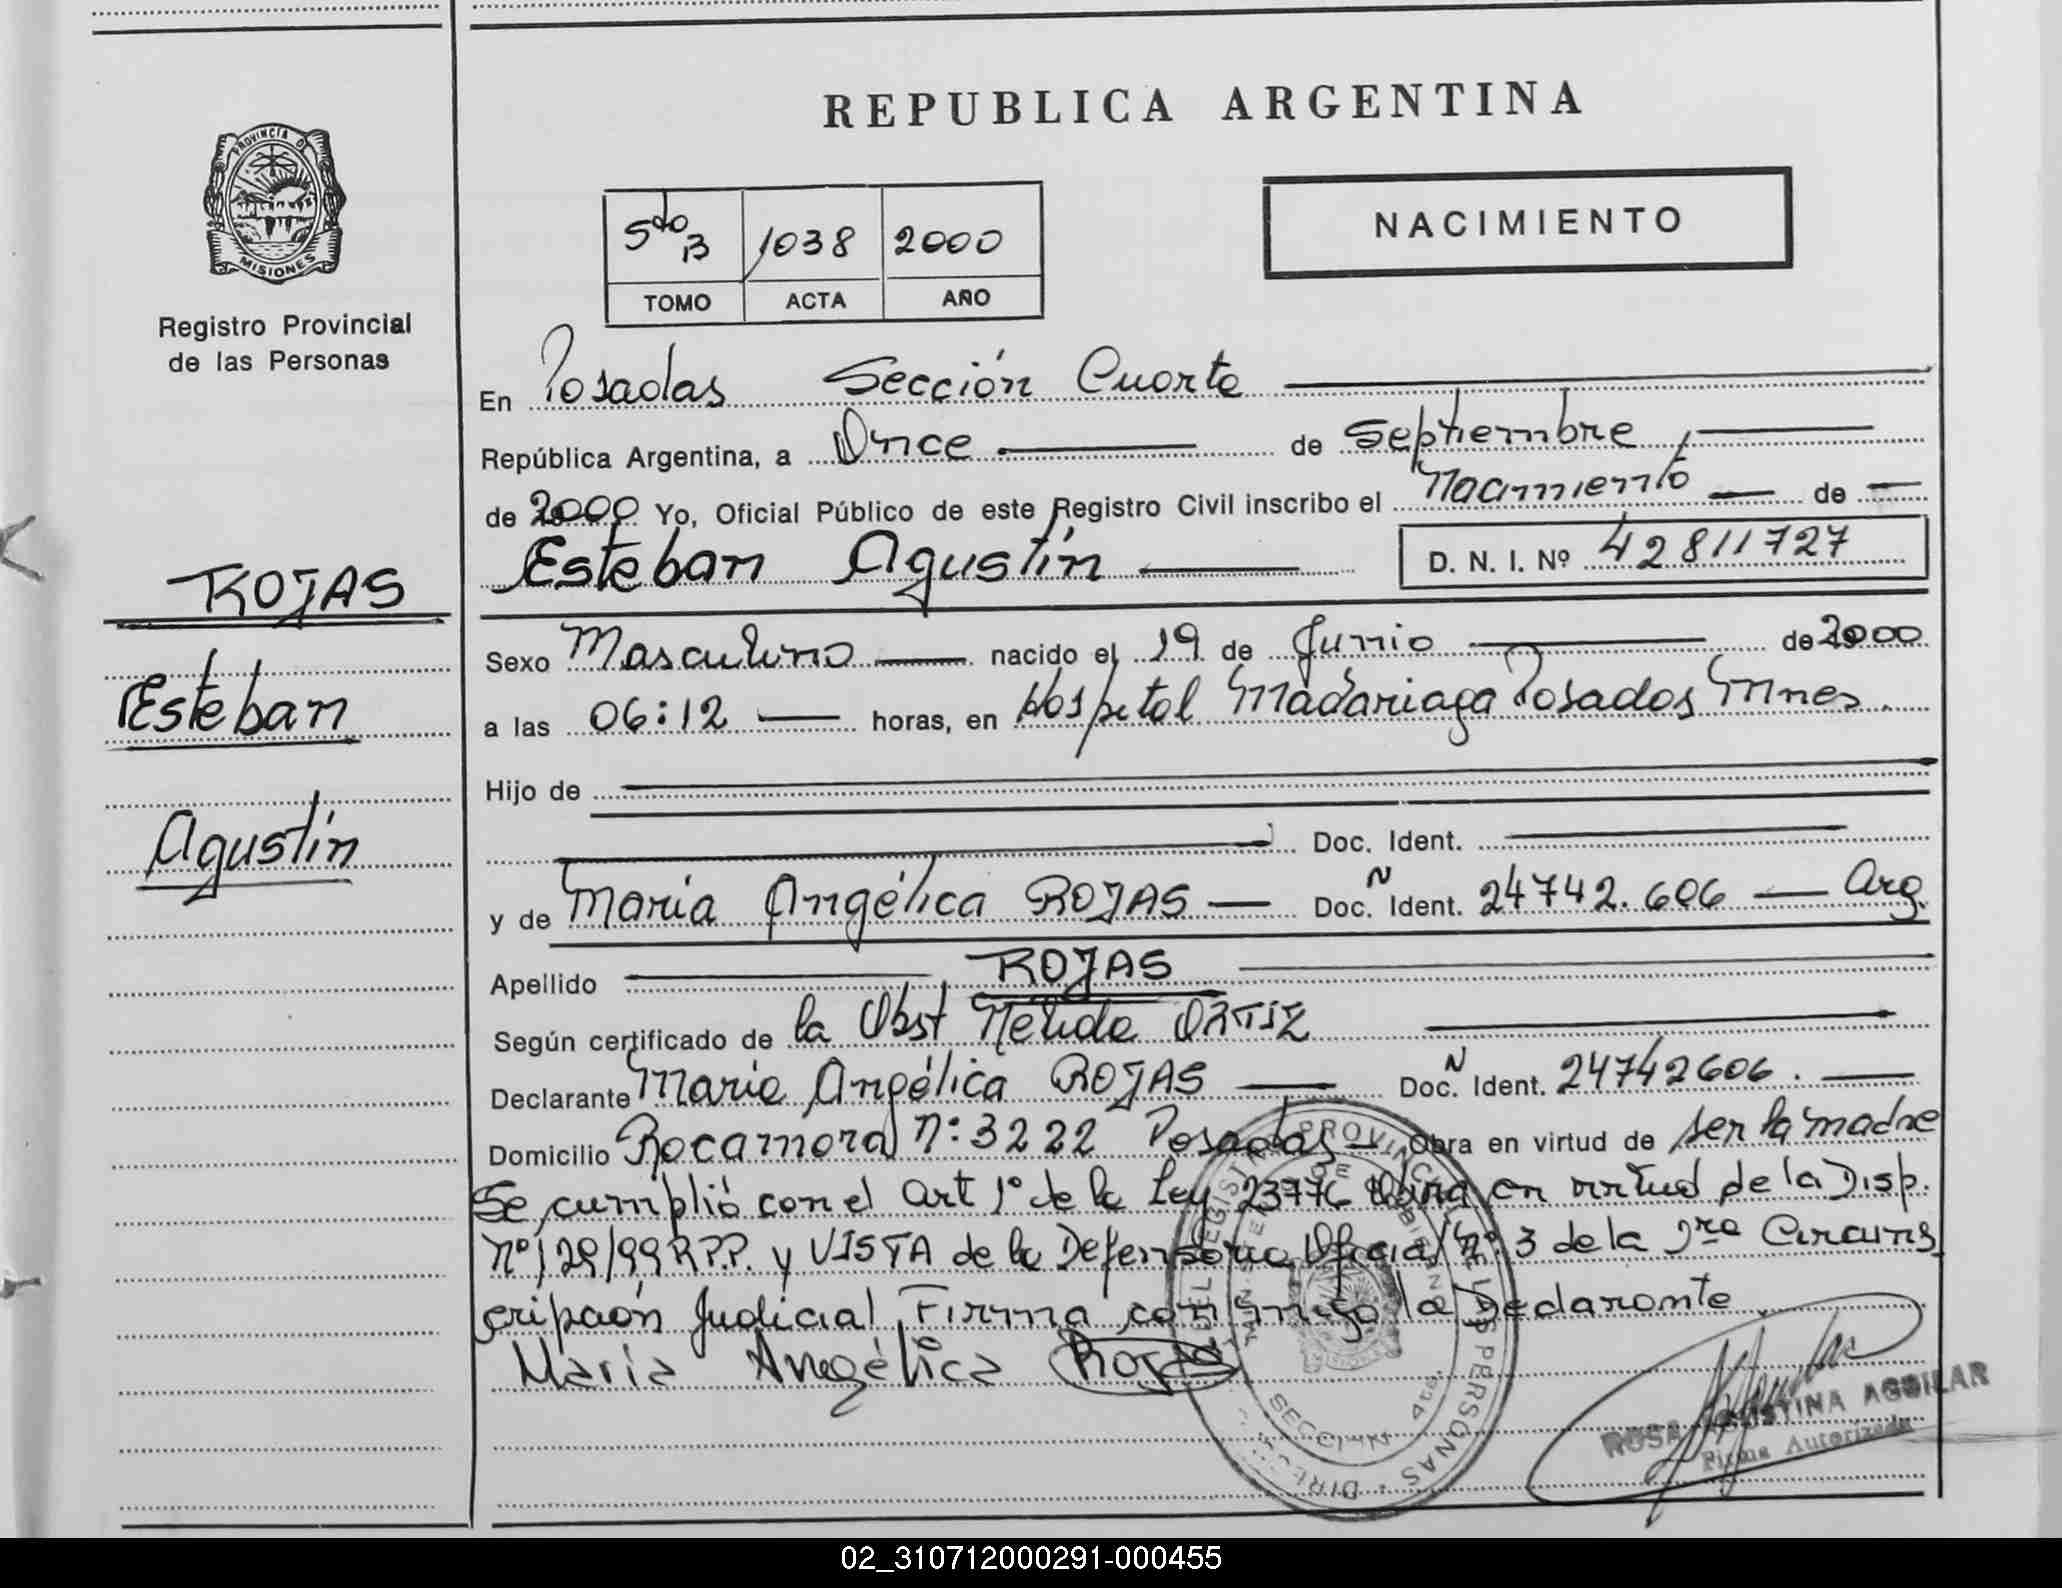 REPUBLICA ARGENTINA
PROVINCIA DE
MISIONES
Registro Provincial
de las Personas
5to B 1038 2000
TOMO ACTA AÑO
NACIMIENTO
En Posadas Sección Cuarta
República Argentina, a Once de Septiembre
de 2000 Yo, Oficial Público de este Registro Civil inscribo el Nacimiento de
Esteban Agustín D. N. I. Nº 42811727
ROJAS
Esteban
Agustín
Sexo Masculino nacido el 19 de Junio de 2000
a las 06:12 horas, en Hospital Madariaga Posadas Mnes.
Hijo de
Doc. Ident.
y de María Angélica ROJAS Doc. N Ident. 24742.606 Arg.
Apellido ROJAS
Según certificado de la Obst Nélida ORTIZ
Declarante María Angélica ROJAS Doc. N Ident. 24742606.
Domicilio Rocamora Nº: 3222 Posadas Obra en virtud de ser la madre
Se cumplió con el Art 1º de la Ley 23776 Obra en virtud de la Disp.
Nº 129/99 R.P.P. y VISTA de la Defensoría Oficial Nº 3 de la 1ra Circuns
cripción Judicial Firma conmigo la Declarante
María Angélica Rojas
REGISTRO PROVINCIAL DE LAS PERSONAS
SECCION 4ta.
ROSA AGUSTINA AGUILAR
Firma Autorizada
02_310712000291-000455